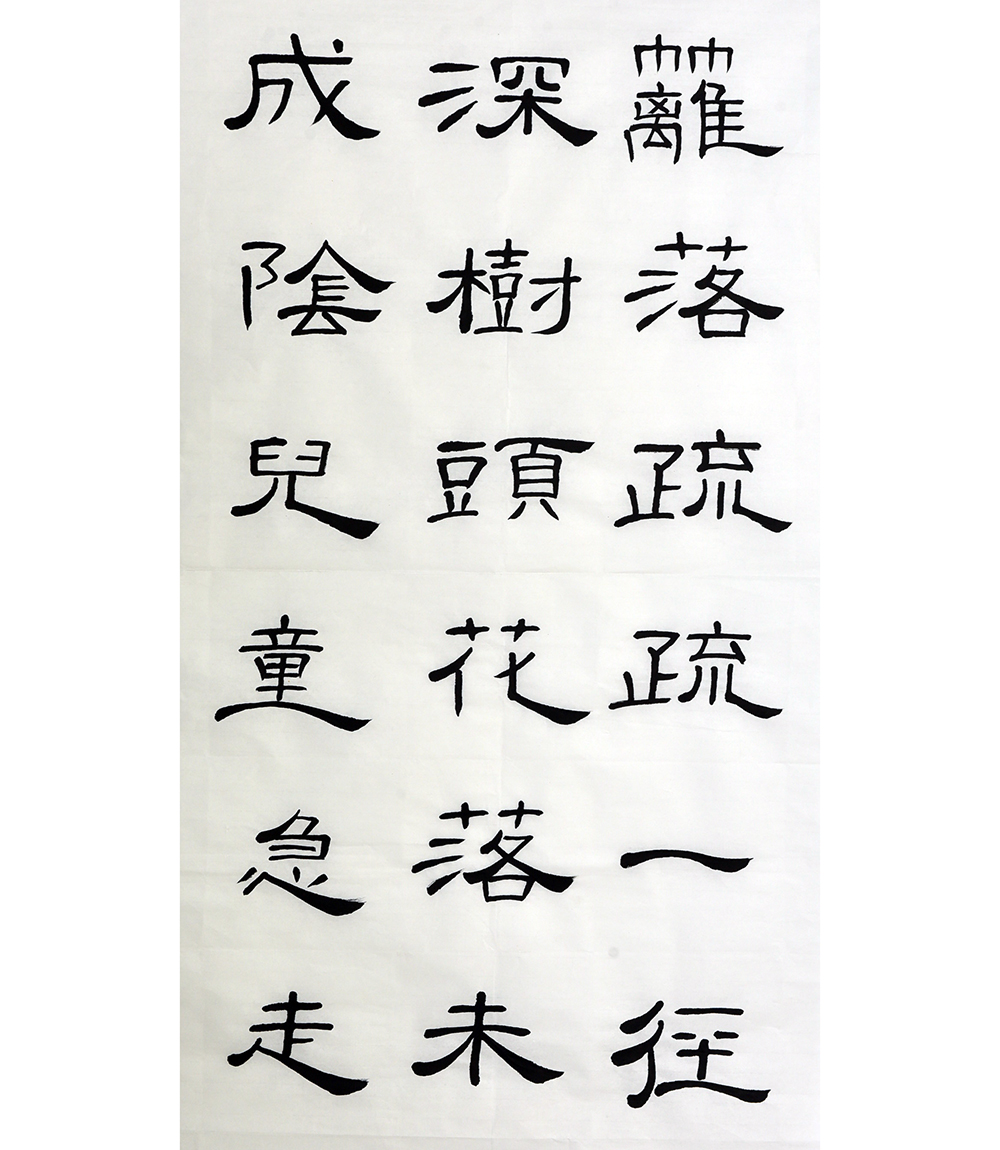 籬落疏疏一徑
深樹頭花落未
成陰兒童急走